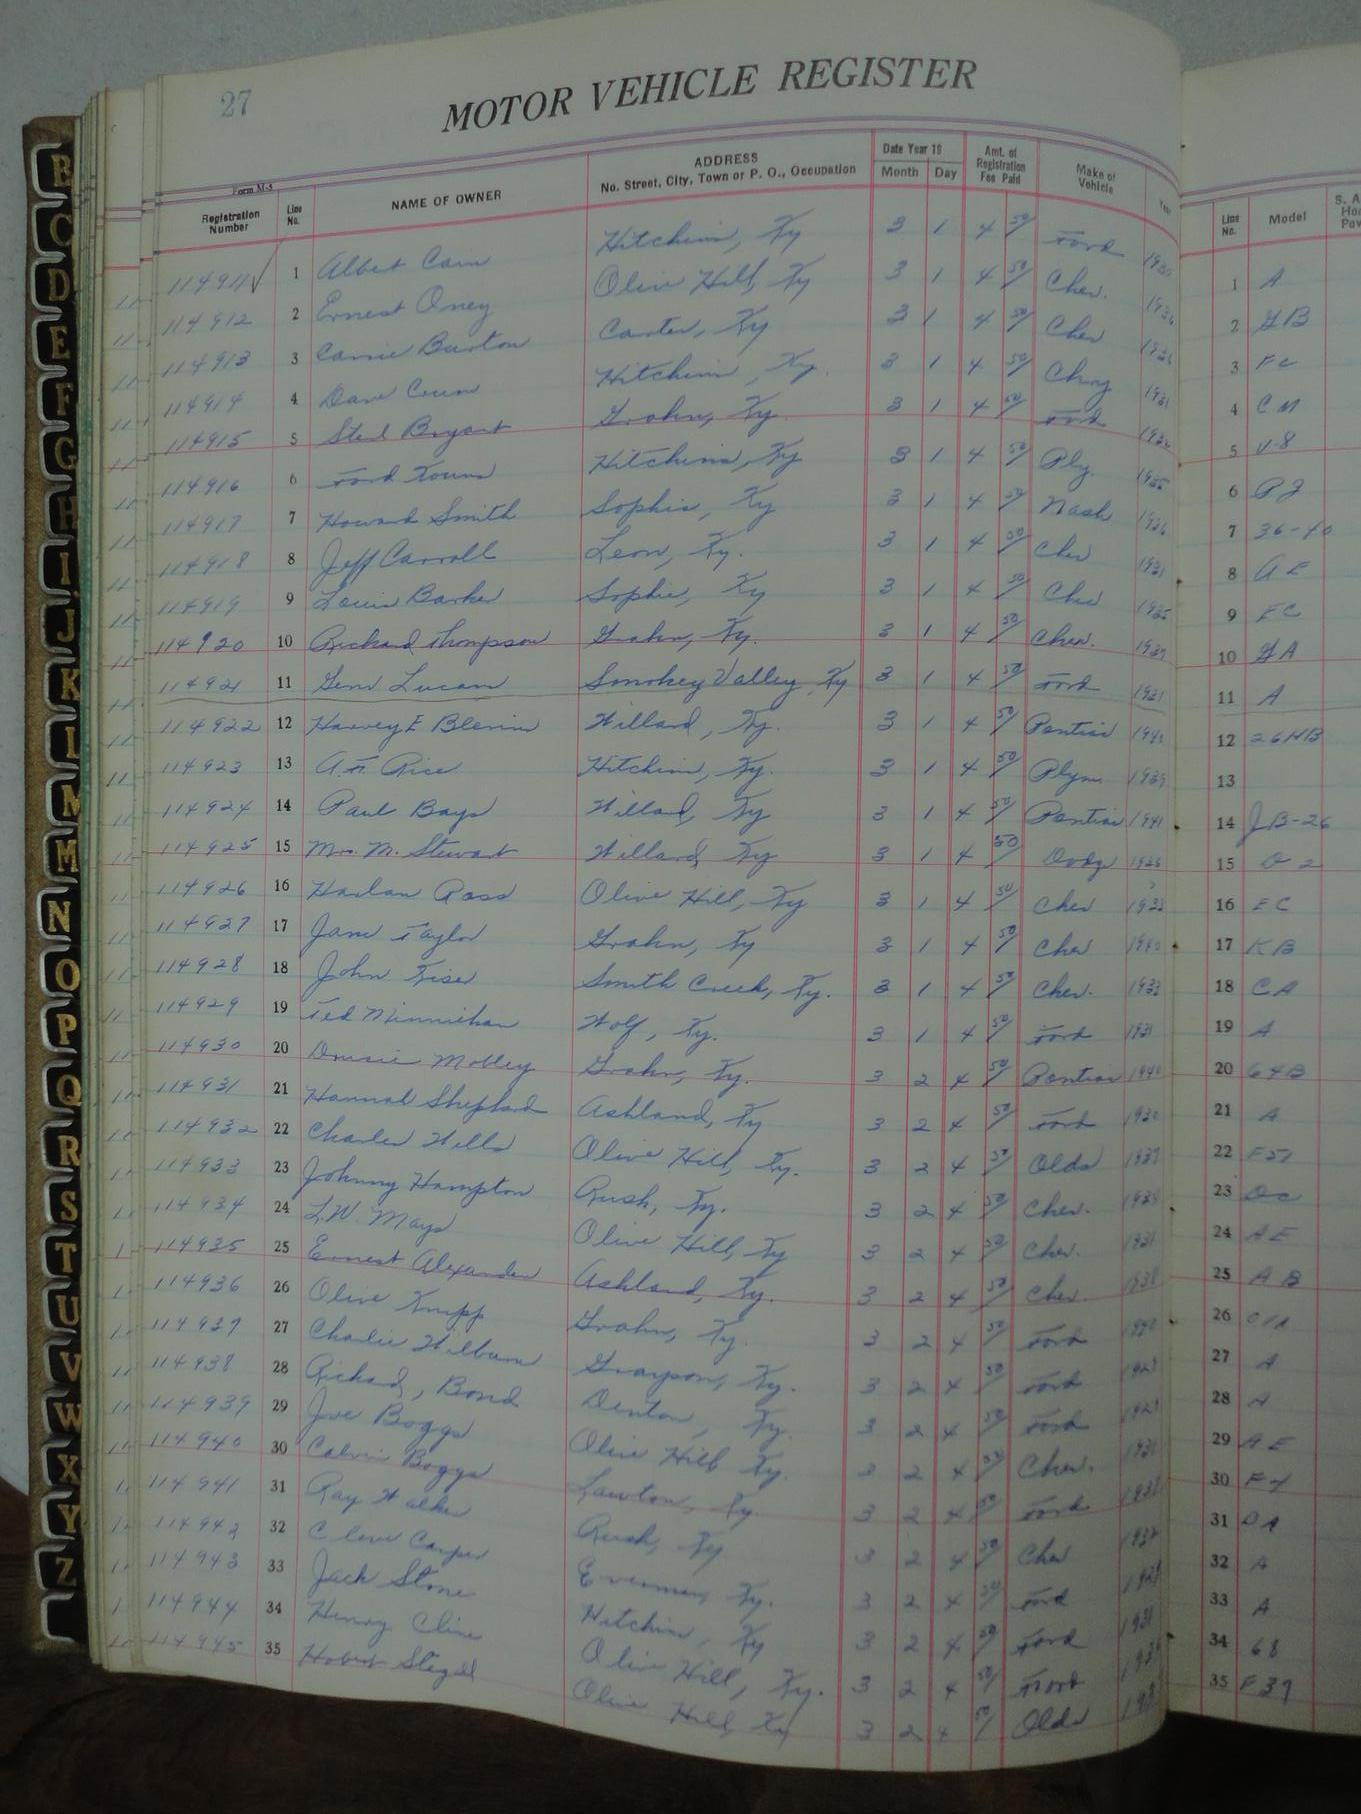 27
MOTOR VEHICLE REGISTER
Form M-5
Registration Number Line No. NAME OF OWNER ADDRESS No. Street, City, Town or P. O., Occupation Date Year 19 Month Day Amt. of Registration Fee Paid Make of Vehicle Year Line No. Model
114911 1 Albert Cain Hitchins, Ky 3 1 4 50 Ford 1930 1 A
114912 2 Ernest Oney Olive Hill, Ky 3 1 4 50 Chev. 1936 2 GB
114913 3 Carrie Burton Carter, Ky 3 1 4 50 Chev 3 FC
114914 4 Dave Hitchins, Ky. 3 1 4 50 1931 4 CM
114915 5 Bryant Grahn, Ky. 3 1 4 50 Ford 5 V-8
114916 6 Ford Hitchins, Ky 3 1 4 50 Ply. 1935 6 PJ
114917 7 Howard Smith Sophie, Ky 3 1 4 50 Nash 1936 7 36-40
114918 8 Jeff Carroll Leon, Ky. 3 1 4 50 Chev 1931 8 AE
114919 9 Louis Barker Sophie, Ky 3 1 4 50 Chev 1935 9 EC
114920 10 Richard Thompson Grahn, Ky. 3 1 4 50 Chev. 1937 10 GA
114921 11 Gene Lucas Smokey Valley, Ky 3 1 4 50 Ford 1931 11 A
114922 12 Harvey E Blevins Willard, Ky. 3 1 4 50 Pontiac 1940 12 26HB
114923 13 Rice Hitchins, Ky. 3 1 4 50 Plym 1939 13
114924 14 Paul Bays Willard, Ky 3 1 4 50 Pontiac 1941 14 JB-26
114925 15 Mrs. M. Stewart Willard, Ky 3 1 4 50 Dodge 15 2
114926 16 Harlan Ross Olive Hill, Ky 3 1 4 50 Chev 16 EC
114927 17 Jane Taylor Grahn, Ky 3 1 4 50 Chev 1940 17 KB
114928 18 John Kiser Smith Creek, Ky. 3 1 4 50 Chev. 1933 18 CA
114929 19 Ted Minnichan Wolf, Ky. 3 1 4 50 Ford 1931 19 A
114930 20 Mobley Grahn, Ky. 3 2 4 50 Pontiac 1940 20 64B
114931 21 Hannah Shephard Ashland, Ky 3 2 4 50 Ford 1930 21 A
114932 22 Charles Wells Olive Hill, Ky. 3 2 4 50 Olds 1937 22
114933 23 Johnny Hampton Rush, Ky. 3 2 4 50 Chev. 23 DC
114934 24 L.W. Mays Olive Hill, Ky 3 2 4 50 Chev. 1931 24 AE
114935 25 Ernest Alexander Ashland, Ky. 3 2 4 50 Chev. 25 AB
114936 26 Olive Knipp Grahn, Ky. 3 2 4 50 Ford 1940 26 01A
114937 27 Charlie Wilburn Grayson, Ky. 3 2 4 50 Ford 27 A
114938 28 Richard, Bond Denton, Ky. 3 2 4 50 Ford 28 A
114939 29 Joe Boggs Olive Hill Ky. 3 2 4 50 Chev. 1931 29 AE
114940 30 Calvin Boggs Lawton, Ky. 3 2 4 50 Ford 30
114941 31 Ray Walker Rush, Ky 3 2 4 50 Chev 31 DA
114942 32 Cleve Cooper Everman, Ky. 3 2 4 50 Ford 32 A
114943 33 Jack Stone Hitchins, Ky 3 2 4 50 Ford 1931 33 A
114944 34 Henry Cline Olive Hill, Ky. 3 2 4 50 Ford 34 68
114945 35 Hobert Olive Hill, Ky 3 2 4 50 Olds 35 F37
B
C
D
E
F
G
H
I
J
K
L
M
M
N
O
P
Q
R
S
T
U
V
W
X
Y
Z